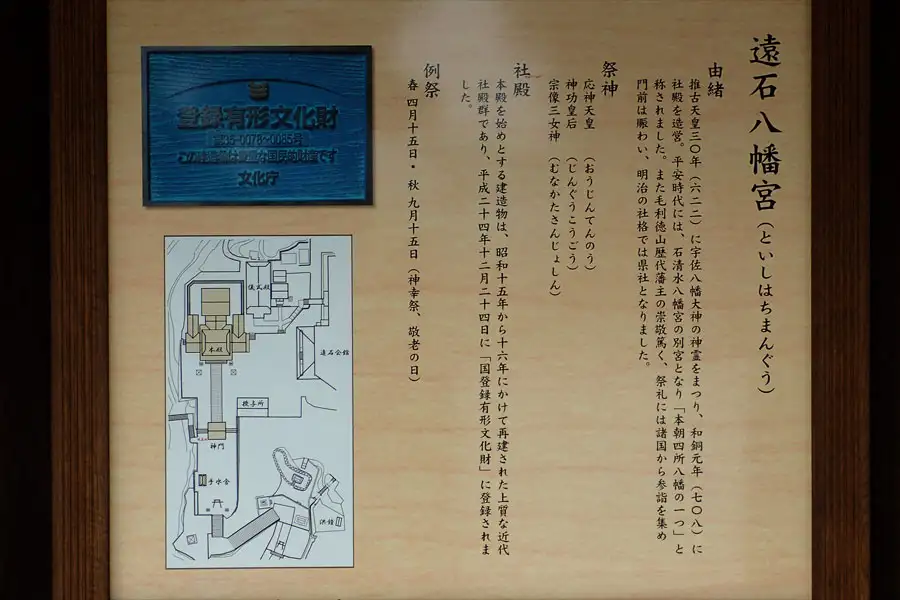 遠石八幡宮（といしはちまんぐう）
由緒
推古天皇三〇年（六二二）に宇佐八幡大神の神霊をまつり、和銅元年（七〇八）に
社殿を造営。平安時代には、石清水八幡宮の別宮となり「本朝四所八幡の一つ」と
称されました。また毛利徳山歴代藩主の崇敬篤く、祭礼には諸国から参詣を集め
門前は賑わい、明治の社格では県社となりました。
祭神
応神天皇　（おうじんてんのう）
神功皇后　（じんぐうこうごう）
宗像三女神　（むなかたさんじょしん）
社殿
本殿を始めとする建造物は、昭和十五年から十六年にかけて再建された上質な近代
社殿群であり、平成二十四年十二月二十四日に「国登録有形文化財」に登録されま
した。
例祭
春　四月十五日・秋　九月十五日（神幸祭、敬老の日）
登録有形文化財
第35-0078~0085号
この建造物は貴重な国民的財産です
文化庁
儀式殿
本殿
遠石会館
授与所
神門
手水舎
洪鐘